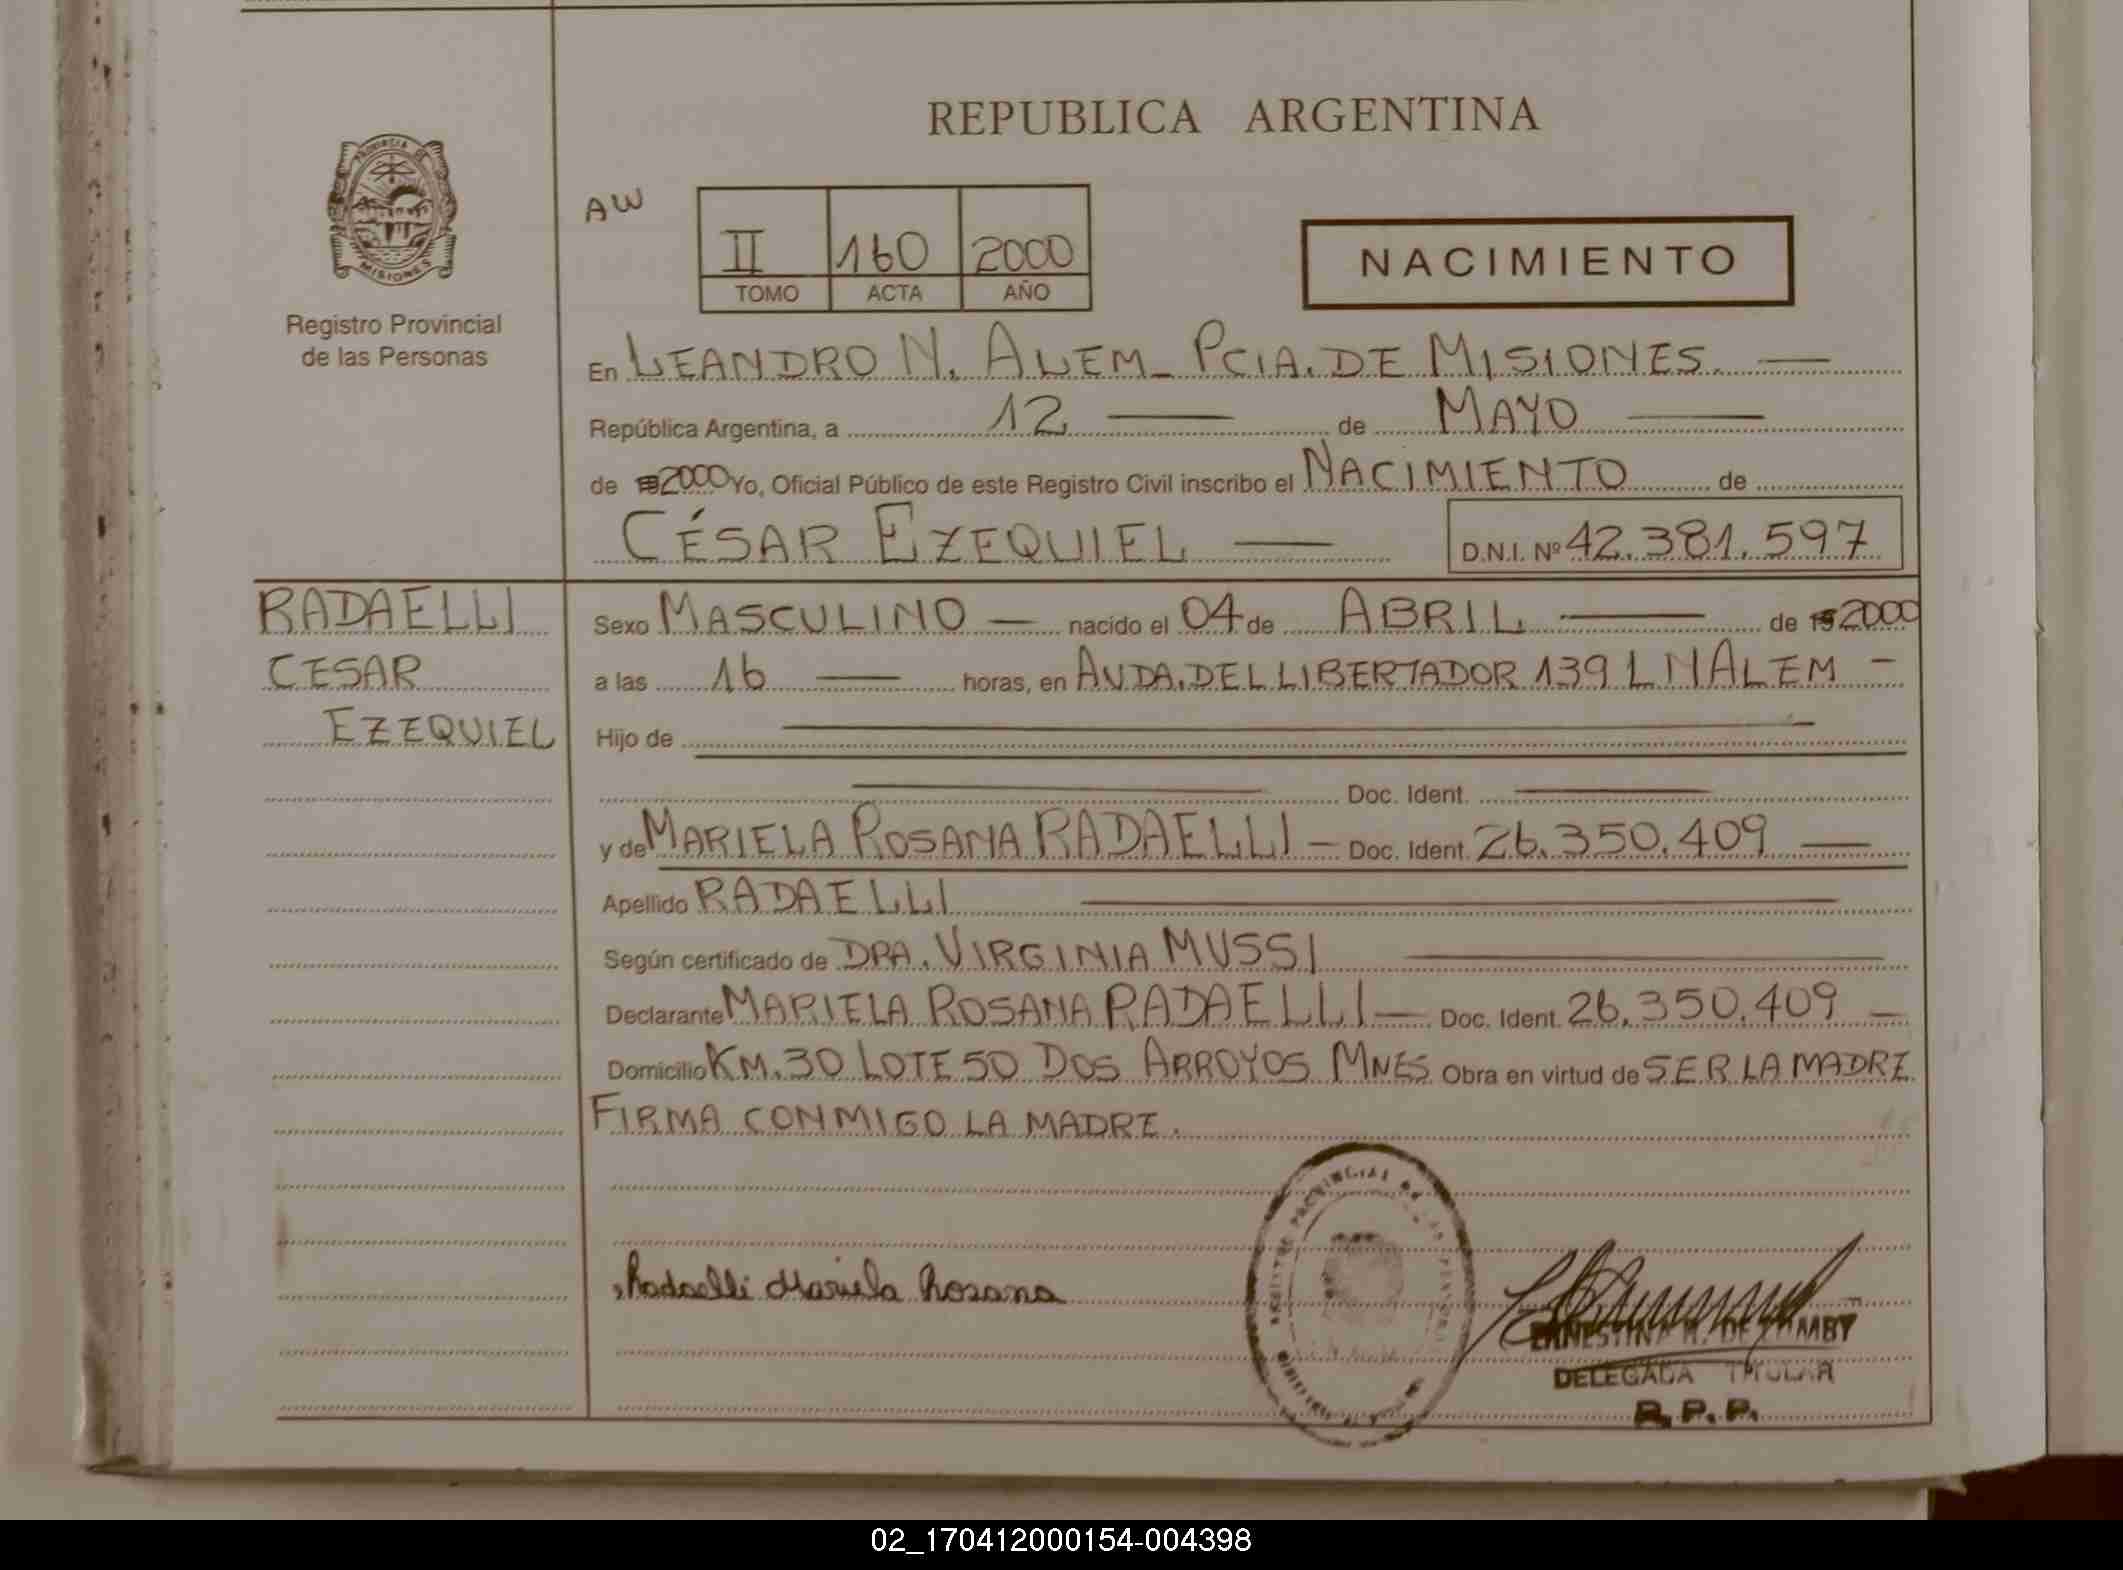 REPUBLICA ARGENTINA
PROVINCIA DE
MISIONES
Registro Provincial
de las Personas
AW
II 160 2000
TOMO ACTA AÑO
NACIMIENTO
En LEANDRO N. ALEM_ PCIA. DE MISIONES. —
República Argentina, a 12 — de MAYO —
de 2000 Yo, Oficial Público de este Registro Civil inscribo el NACIMIENTO de
CÉSAR EZEQUIEL — D.N.I. Nº 42.381.597
RADAELLI
CESAR
EZEQUIEL
Sexo MASCULINO — nacido el 04 de ABRIL — de 2000
a las 16 — horas, en AVDA. DEL LIBERTADOR 139 L N ALEM —
Hijo de —
— Doc. Ident. —
y de MARIELA ROSANA RADAELLI — Doc. Ident. 26.350.409 —
Apellido RADAELLI —
Según certificado de DRA. VIRGINIA MUSSI —
Declarante MARIELA ROSANA RADAELLI — Doc. Ident. 26.350.409 —
Domicilio KM. 30 LOTE 50 DOS ARROYOS MNES Obra en virtud de SER LA MADRE
FIRMA CONMIGO LA MADRE.
Radaelli Mariela Rosana
PROVINCIAL DE
DELEGADA TITULAR
R. P. P.
02_170412000154-004398